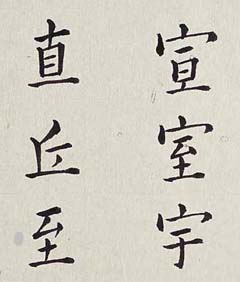 宣室宇
直丘至